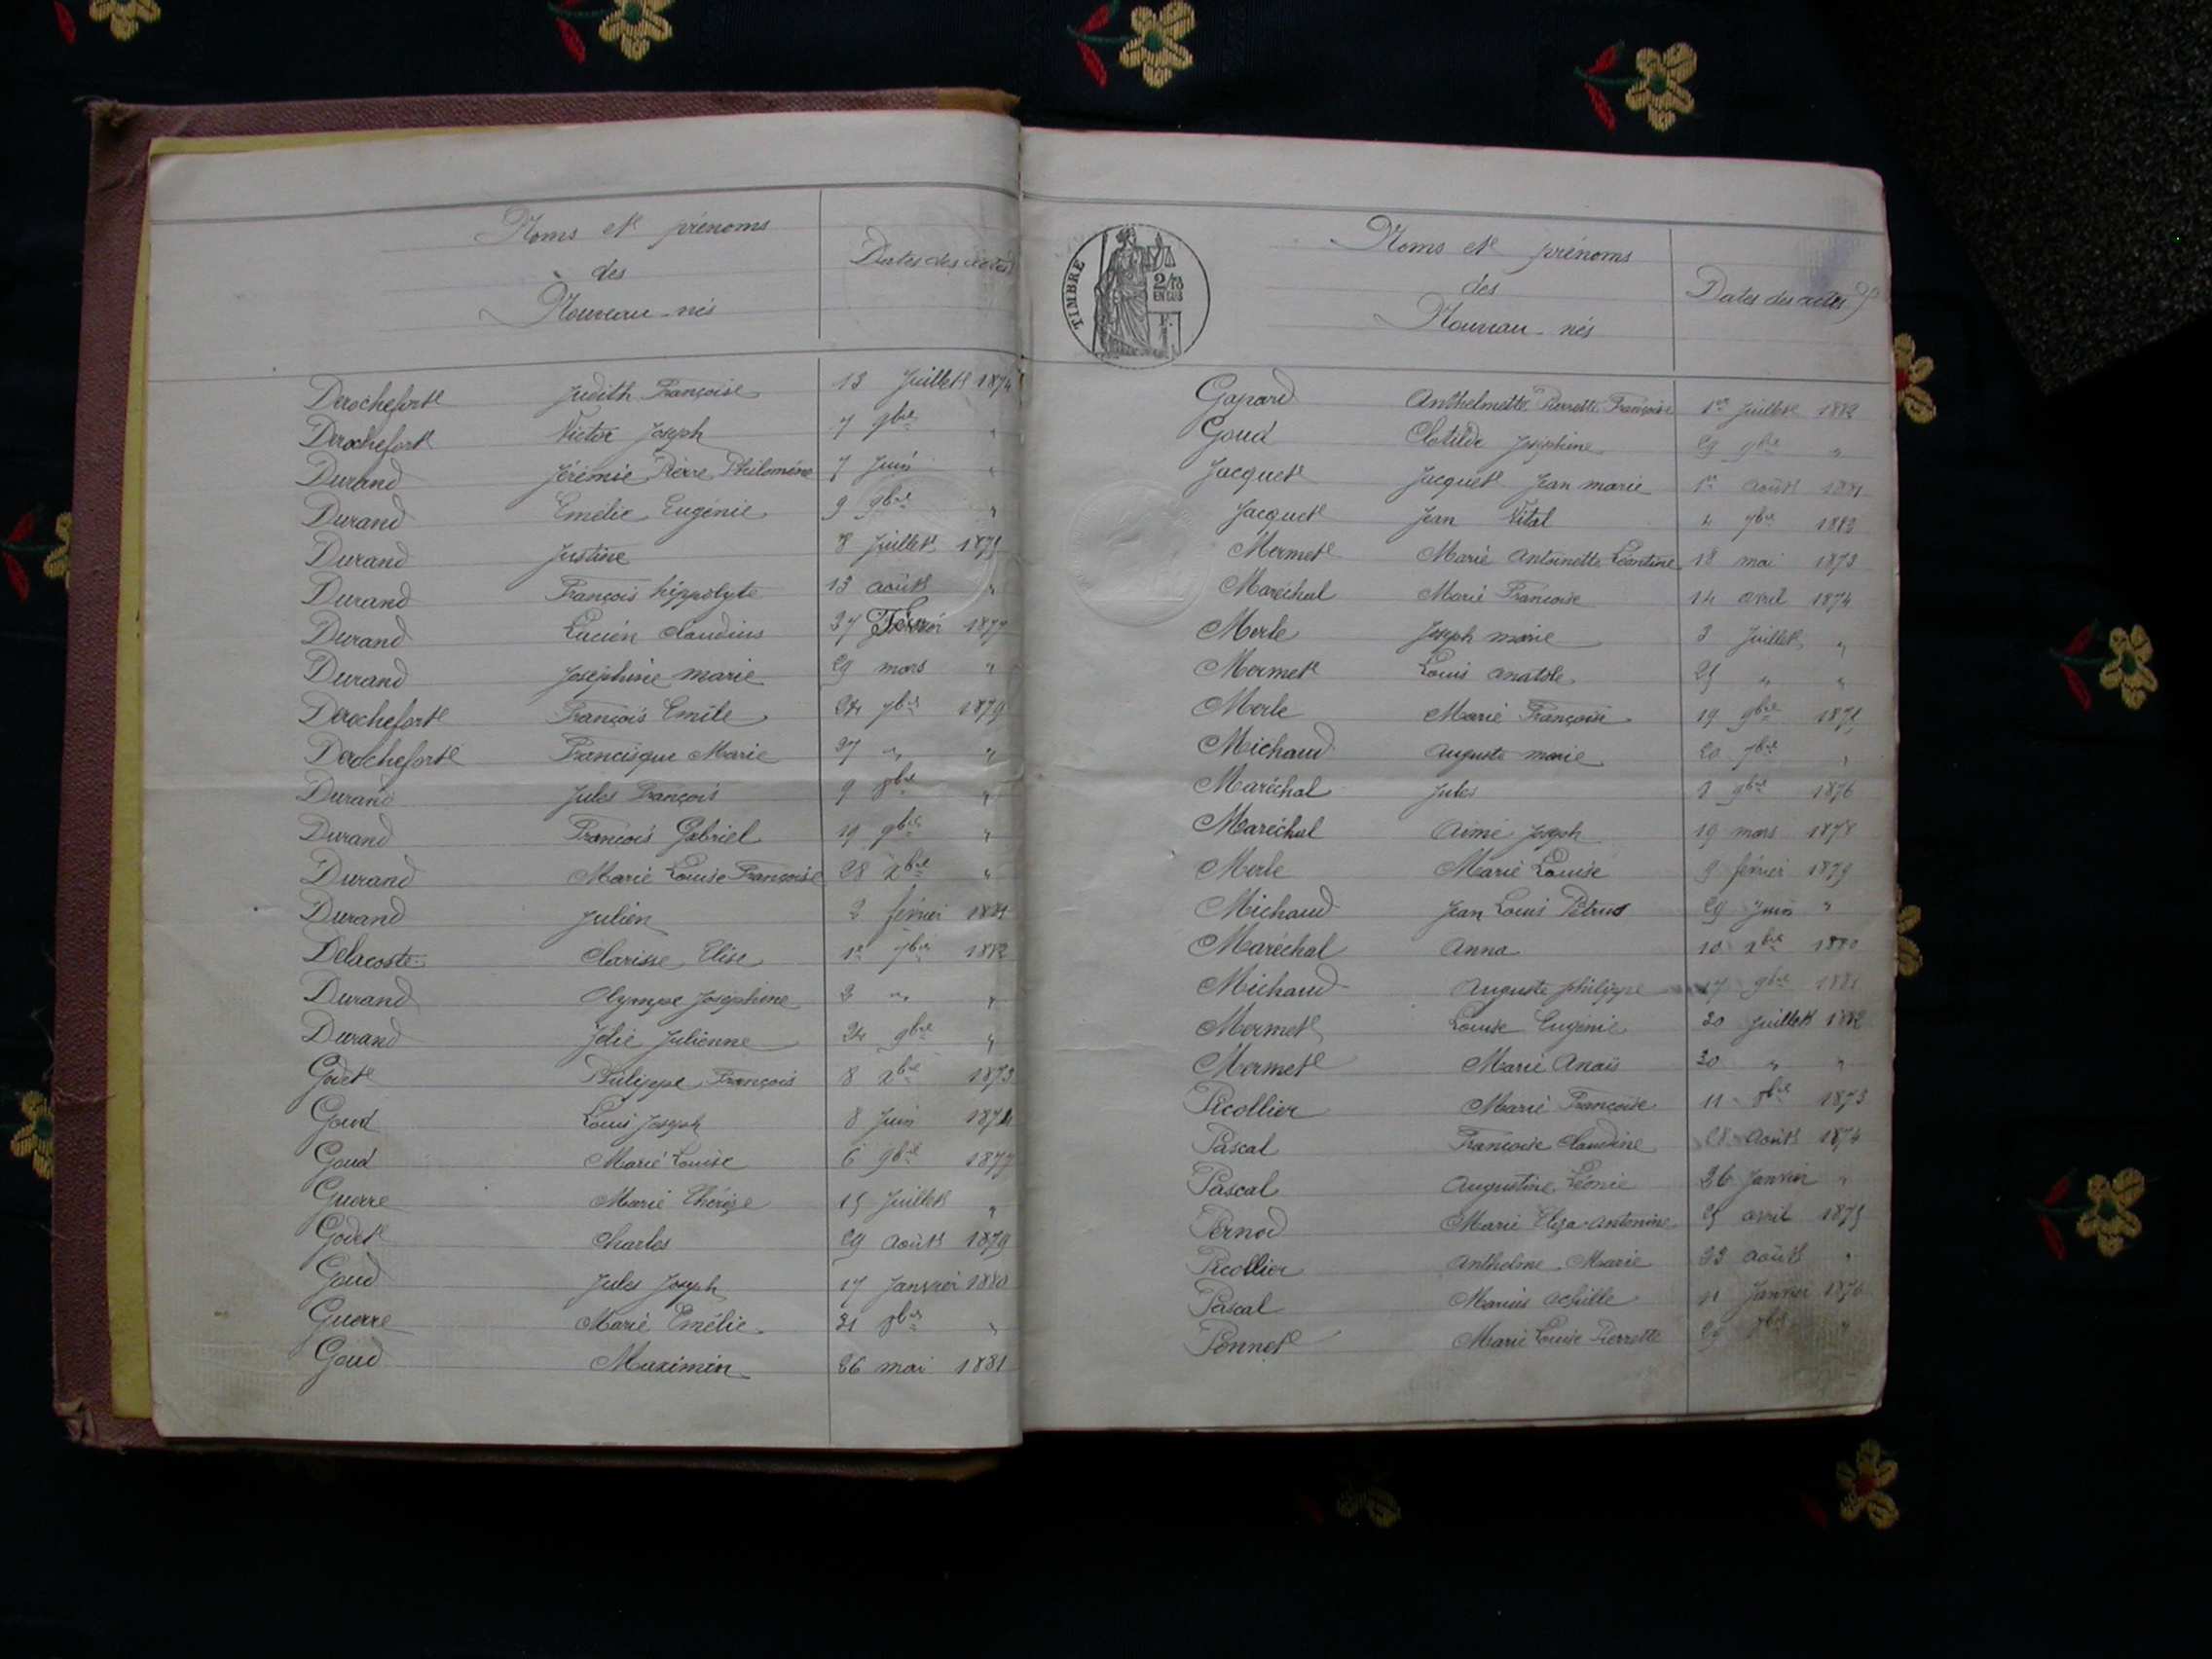 Noms et prénoms
des
Nouveau-nés
Dates des actes
Derochefort Judith Françoise 13 Juillet 1874
Derochefort Victor Joseph 7 9bre "
Durand Jérémie Pierre Philomène 7 Juin "
Durand Emélie Eugénie 9 9bre "
Durand Justine 8 Juillet 1875
Durand François hippolyte 13 août "
Durand Lucien Claudius 27 1877
Durand Joséphine marie 29 mars "
Derochefort François Emile 24 7bre 1879
Derochefort Francisque Marie 27 " "
Durand Jules François 9 8bre "
Durand François Gabriel 19 9bre "
Durand Marie Louise Françoise 28 xbre "
Durand Julien 2 février 1881
Delacoste Clarisse Elise 1er 7bre 1882
Durand Olympe Joséphine 2 " "
Durand Jélie Julienne 24 9bre "
Godet Philippe François 8 xbre 1873
Goud Louis Joseph 8 Juin 1874
Goud Marie Louise 6 9bre 1877
Guerre Marie Thérèse 15 Juillet "
Godet Charles 29 août 1879
Goud Jules Joseph 17 Janvier 1880
Guerre Marie Emélie 31 8bre "
Goud Maximin 26 mai 1881
TIMBRE
2/10
EN SUS
Noms et prénoms
des
Nouveau-nés
Dates des actes
Gapard Anthelmette Pierrette Françoise 1er Juillet 1882
Goud Clotilde Joséphine 29 9bre "
Jacquet Jacquet Jean marie 1er août 1881
Jacquet Jean Vital 4 7bre 1882
Mermet Marie Antoinette Léontine 18 mai 1873
Maréchal Marie Françoise 14 avril 1874
Merle Joseph marie 3 Juillet "
Mermet Louis Anatole 25 " "
Merle Marie Françoise 19 9bre 1875
Michaud Auguste marie 20 7bre "
Maréchal Jules 2 9bre 1876
Maréchal Aimé Joseph 19 mars 1878
Merle Marie Louise 9 février 1879
Michaud Jean Louis Pétrus 29 Juin "
Maréchal Anna 10 xbre 1880
Michaud Auguste philippe 17 9bre 1881
Mermet Louise Eugénie 30 Juillet 1882
Mermet Marie Anaïs 30 " "
Picollier Marie Françoise 11 8bre 1873
Pascal Françoise Claudine 28 Août 1874
Pascal Augustine Léonie 26 Janvier "
Pernod Marie Eliza Antonine 25 avril 1875
Picollier Anthelme Marie 23 août "
Pascal Marius Achille 11 Janvier 1876
Ponnet Marie Louise Pierrette 29 8bre "